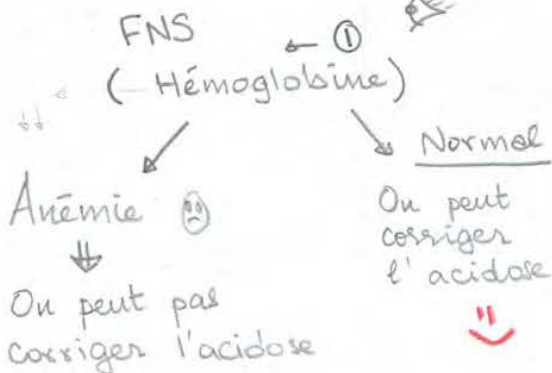 FNS
← ①
( Hémoglobine)
Anémie
⇓
On peut pas
corriger l'acidose
Normal
On peut
corriger
l'acidose